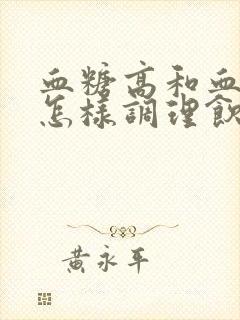 血糖高和血
怎樣調理飲
黃永平